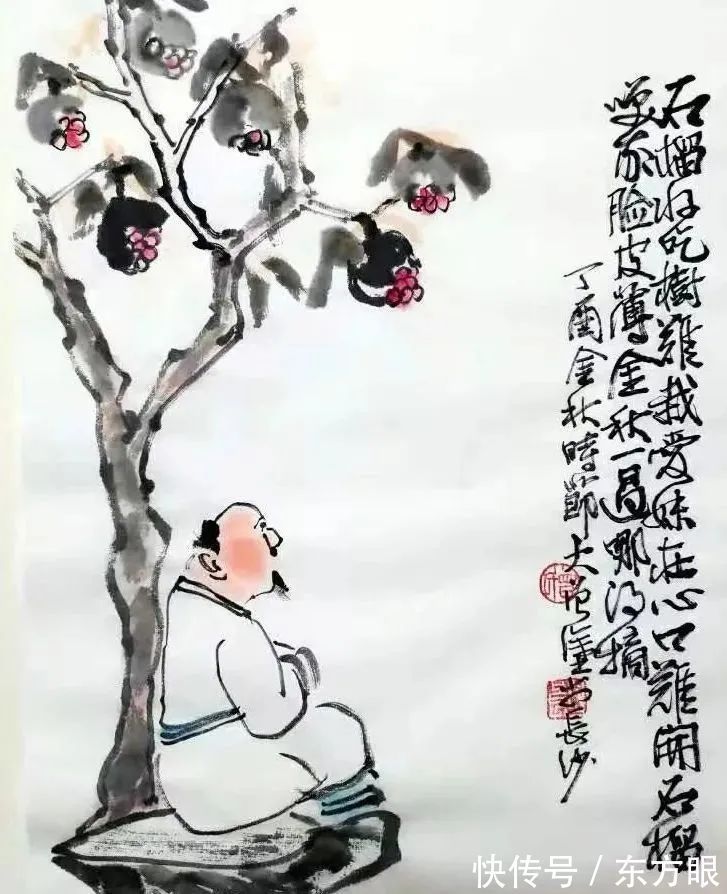 石榴好吃樹難栽愛妹在心口難開石榴
臉皮薄金秋一過哪得摘
丁酉金秋時節大長沙
快传号 / 东方眼